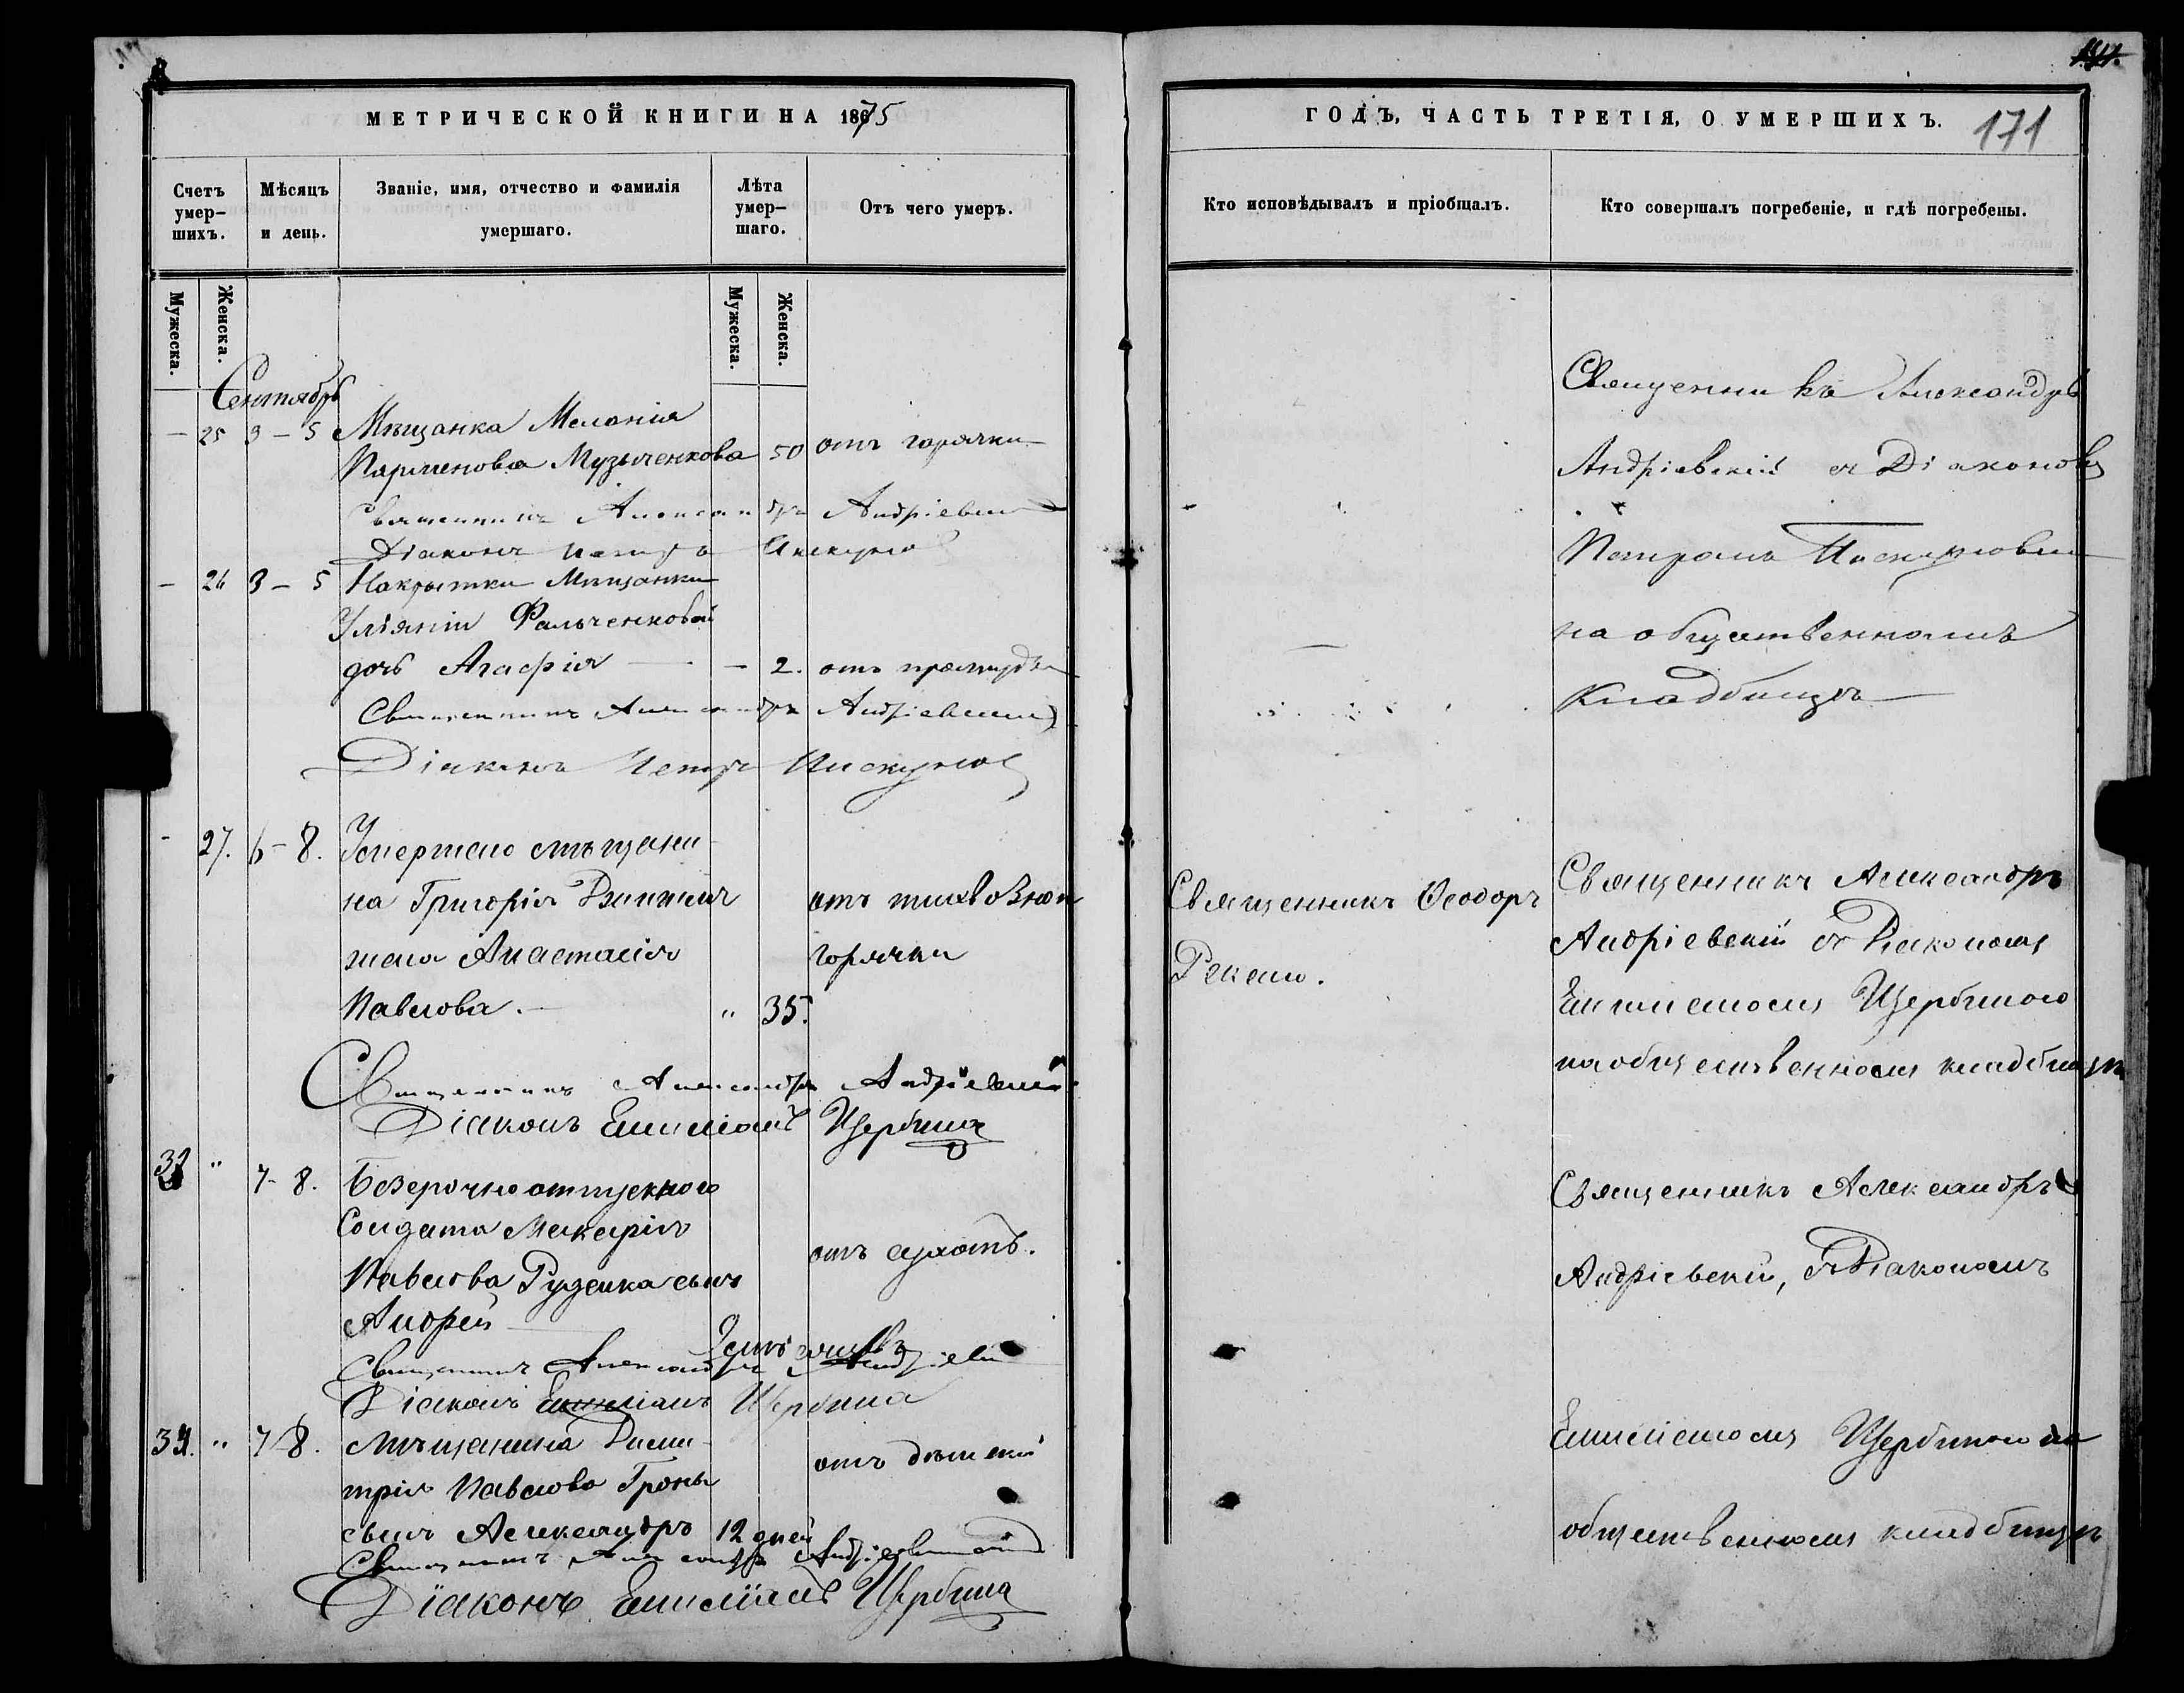 МЕТРИЧЕСКОЙ КНИГИ НА 1875
Счетъ умер-
шихъ.
Мѣсяцъ
и день.
Званіе, имя, отчество и фамилія
умершаго.
Лѣта
умер-
шаго.
Отъ чего умеръ.
Мужеска.
Женска.
Мужеска.
Женска.
Сентябрь
— 25 3 – 5 Мѣщанка Меланія
Парменова Музыченкова 50 отъ горячки
Священникъ Александръ Андріевскій
Діаконъ Петръ Пискуновъ
— 26 3 – 5 Накрытки Мѣщанки
Уліяніи Фальченковой
дочь Агафія — – 2. отъ простуды
Священникъ Александръ Андріевскій
Діаконъ Петръ Пискуновъ
- 27. 6 – 8. Умершаго мѣщани-
на Григорія
отъ тифозной
жена Анастасія горячки
Павлова. — " 35.
Священникъ Александръ Андріевскій
Діаконъ Емиліанъ Щербина
33 " 7 - 8. Безсрочно отпускного
Солдата Макарія
отъ сухотъ.
Павлова Руденка сынъ
Андрей
Священникъ Александръ Андріевскій
Діаконъ Емиліанъ Щербина
34. " 7 - 8. мѣщанина Дими-
отъ дѣтской
трія Павлова Гроны
сынъ Александръ 12 дней
Священникъ Александръ Андріевскій
Діаконъ Емиліанъ Щербина
ГОДЪ, ЧАСТЬ ТРЕТІЯ, О УМЕРШИХЪ.
171
Кто исповѣдывалъ и пріобщалъ.
Кто совершалъ погребеніе, и гдѣ погребены.
Священникъ Александръ
Андріевскій съ Діакономъ
Петромъ Пискуновымъ
на общественномъ
Кладбищѣ
Священникъ Ѳеодоръ
Священникъ Александръ
Андріевскій съ Діакономъ
Емиліаномъ Щербиною
на общественномъ кладбищѣ
Священникъ Александръ
Андріевскій, съ Діакономъ
Емиліаномъ Щербиною на
общественномъ кладбищѣ